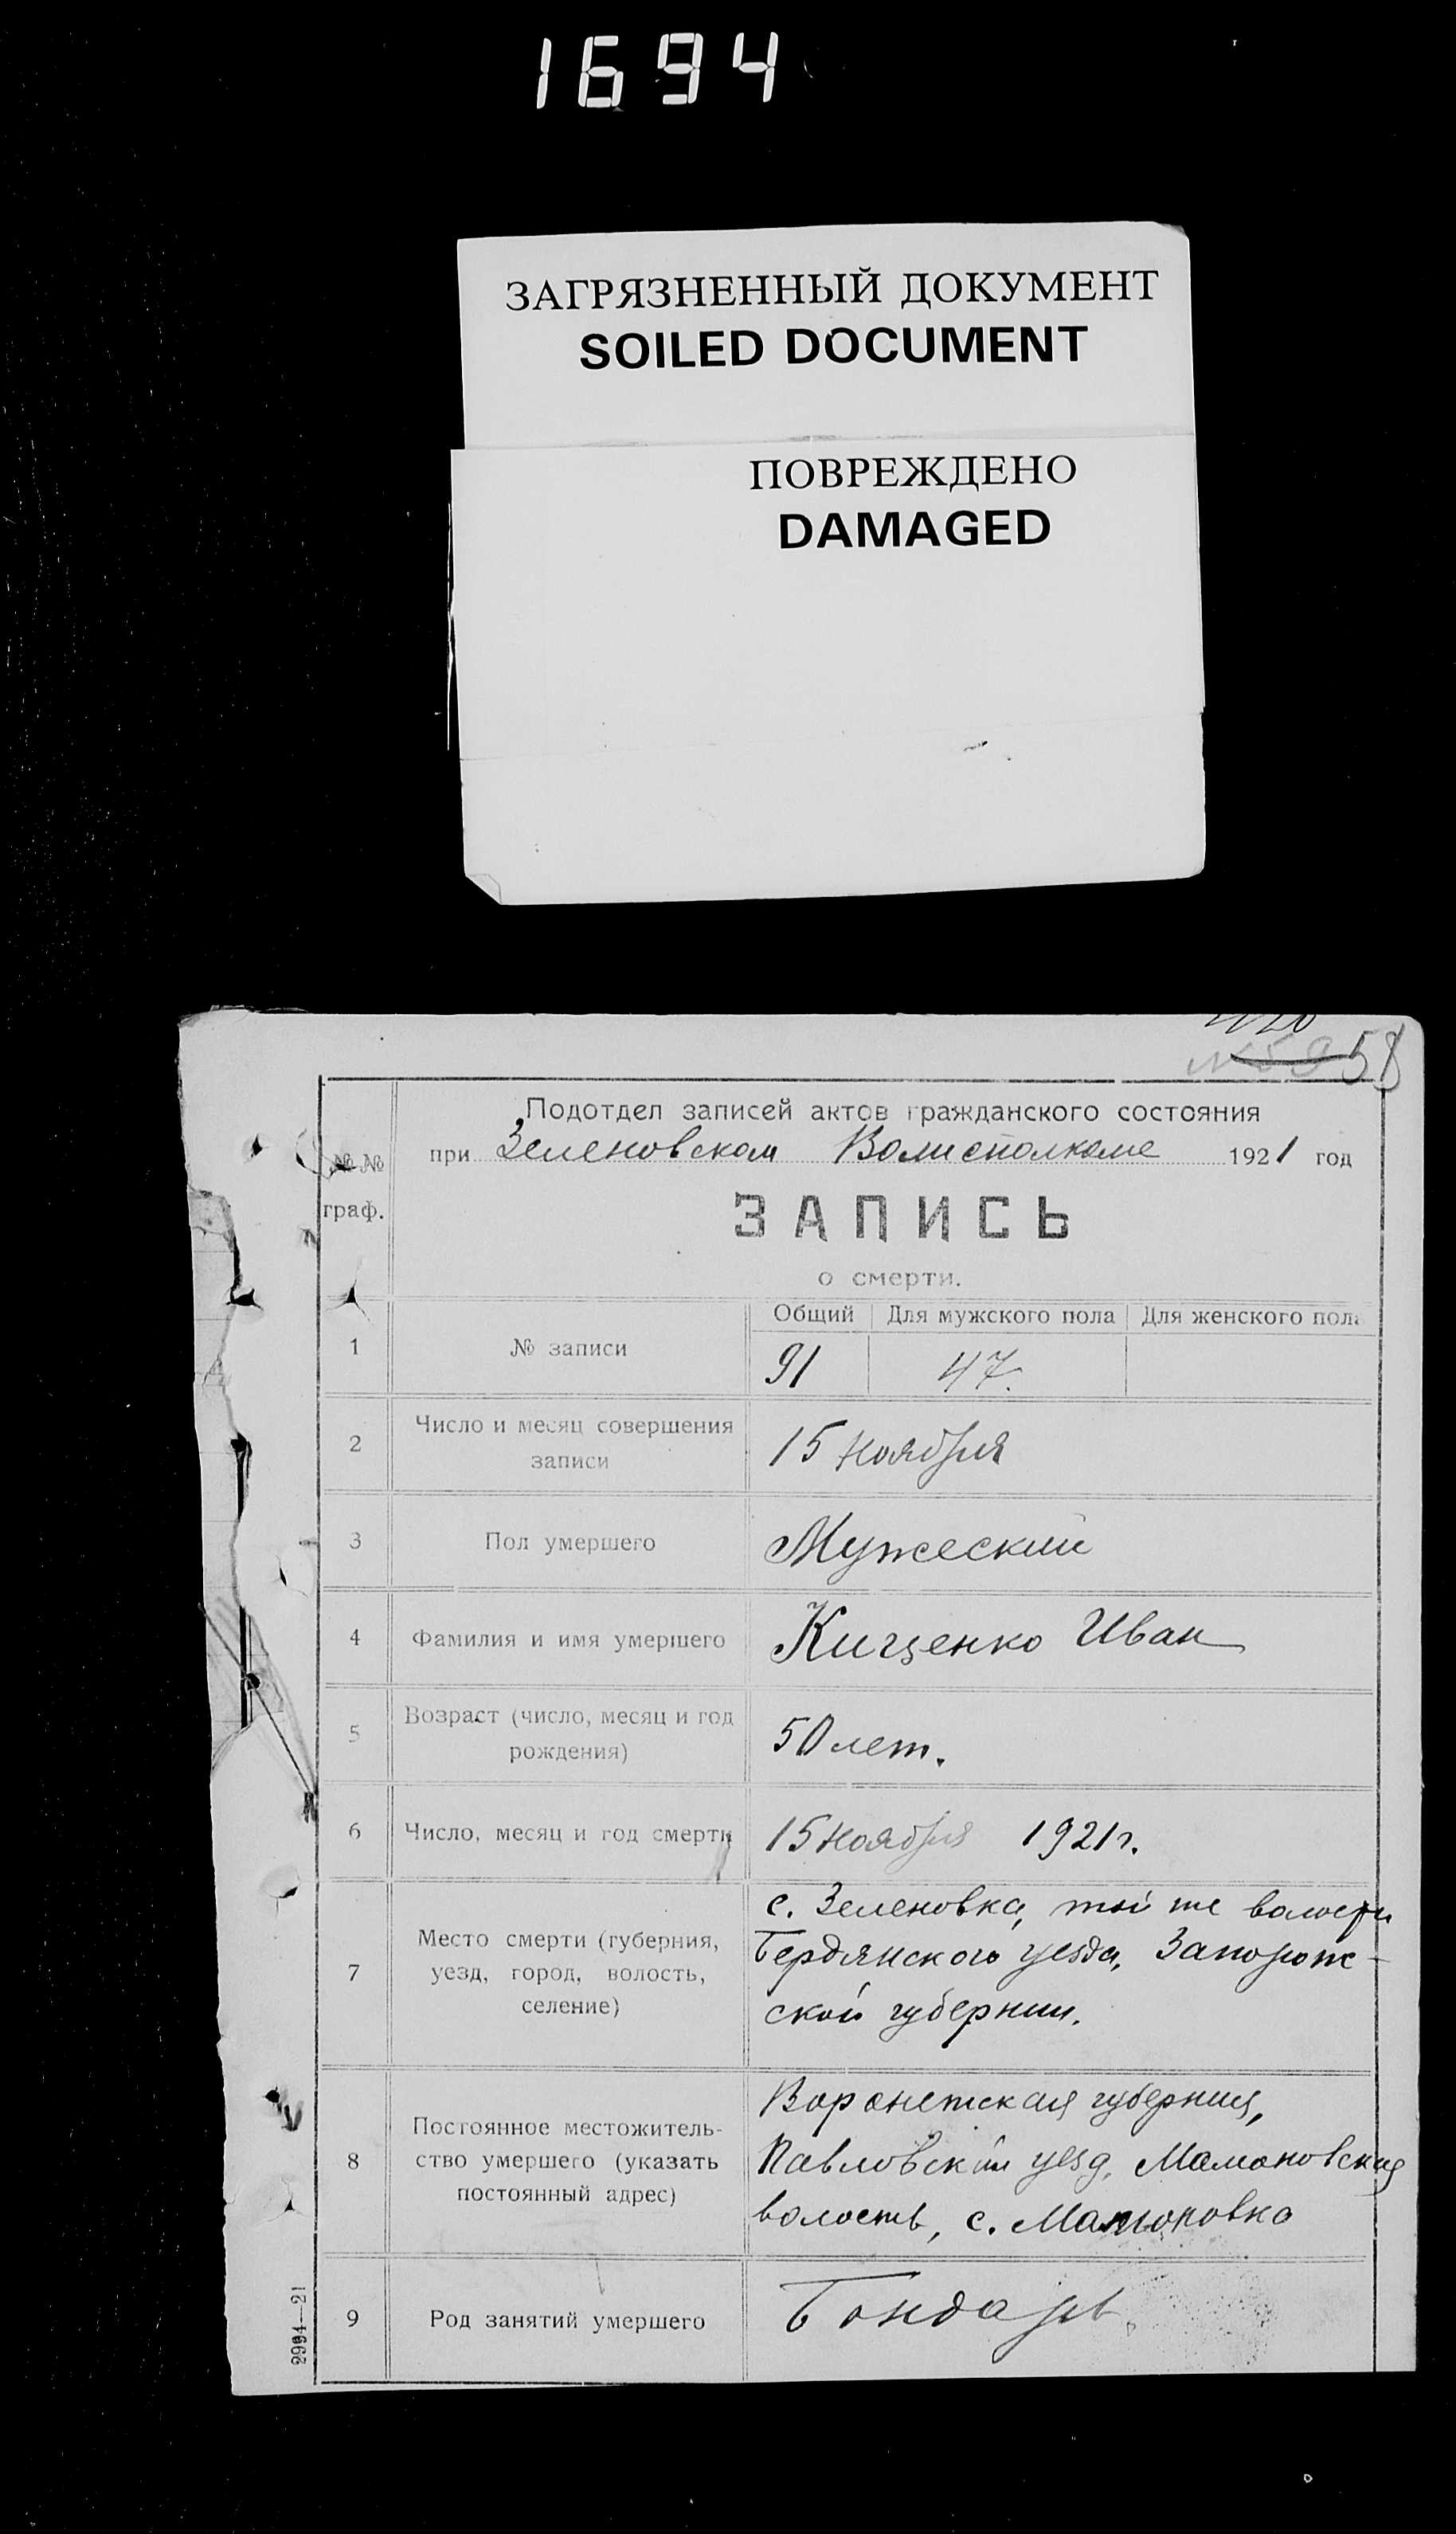 1694
ЗАГРЯЗНЕННЫЙ ДОКУМЕНТ
SOILED DOCUMENT
ПОВРЕЖДЕНО
DAMAGED
58
Подотдел записей актов гражданского состояния
при Зеленовском Волисполкоме 1921 год
№№
граф.
ЗАПИСЬ
о смерти.
Общий Для мужского пола Для женского пола
1 № записи 91 47.
2 Число и месяц совершения
записи 15 ноября
3 Пол умершего Мужеский
4 Фамилия и имя умершего Кищенко Иван
5 Возраст (число, месяц и год
рождения) 50 лет.
6 Число, месяц и год смерти 15 ноября 1921 г.
с. Зеленовка, той же волости
7 Место смерти (губерния,
уезд, город, волость,
селение) Бердянского уезда, Запорож-
ской губернии.
Воронежская губерния,
8 Постоянное местожитель-
ство умершего (указать
постоянный адрес) Павловский уезд, Мамоновская
волость, с. Мамоновка
9 Род занятий умершего Бондарь
2994—21